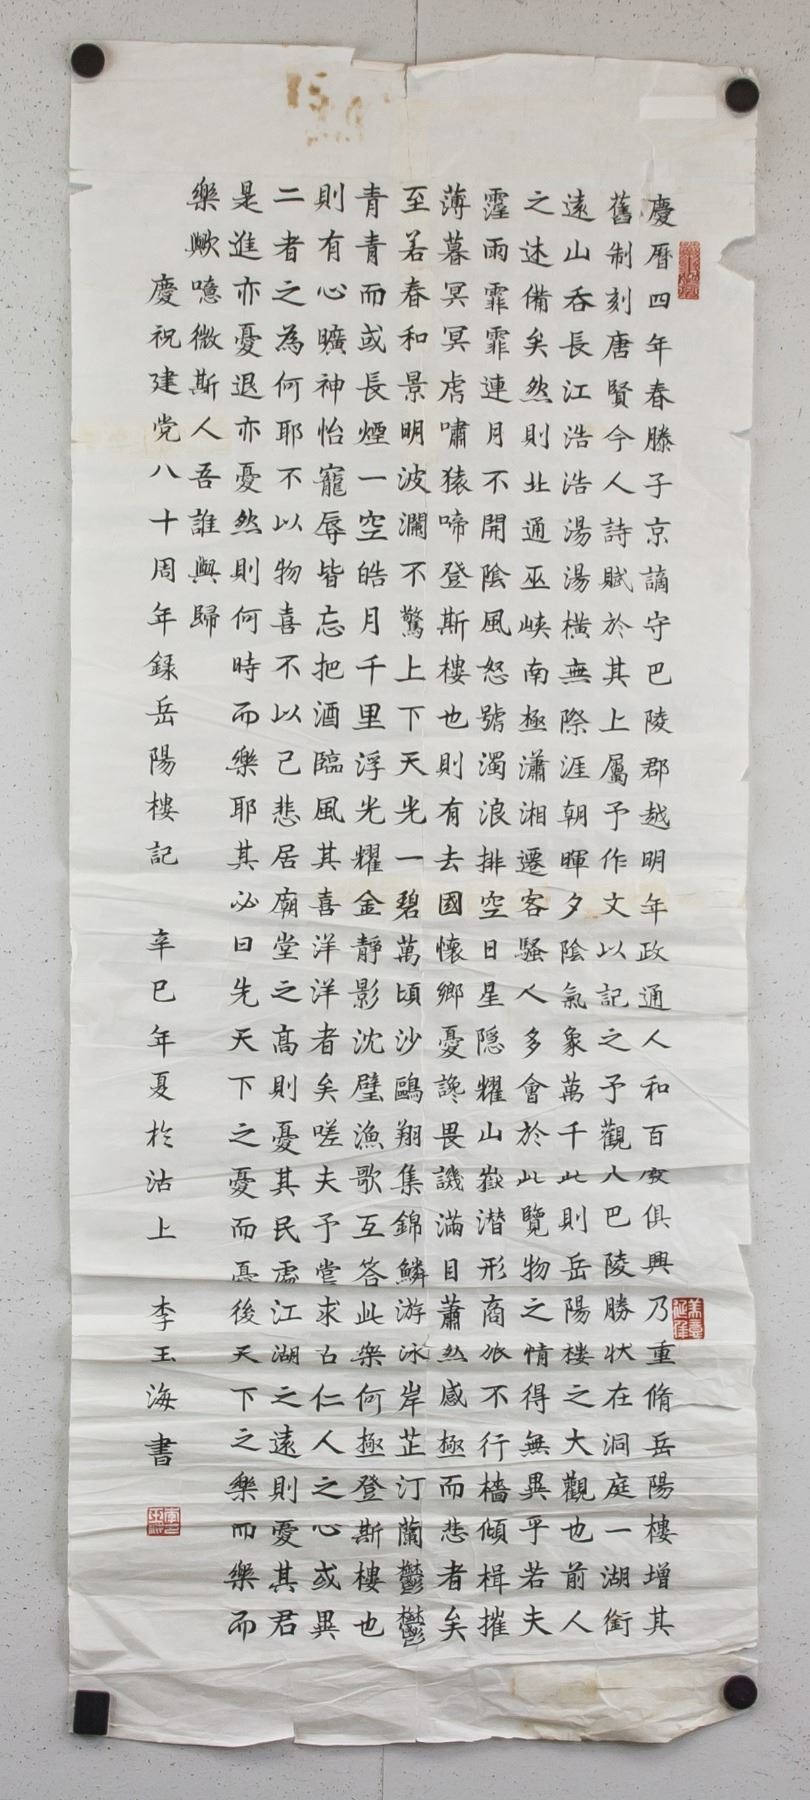 慶曆四年春滕子京謫守巴陵郡越明年政通人和百廢俱興乃重脩岳陽樓增其
舊制刻唐賢今人詩賦於其上屬予作文以記之予觀夫巴陵勝狀在洞庭一湖銜
遠山吞長江浩浩湯湯橫無際涯朝暉夕陰氣象萬千此則岳陽樓之大觀也前人
之述備矣然則北通巫峽南極瀟湘遷客騷人多會於此覽物之情得無異乎若夫
霪雨霏霏連月不開陰風怒號濁浪排空日星隱耀山嶽潛形商旅不行檣傾楫摧
薄暮冥冥虎嘯猿啼登斯樓也則有去國懷鄉憂讒畏譏滿目蕭然感極而悲者矣
至若春和景明波瀾不驚上下天光一碧萬頃沙鷗翔集錦鱗游泳岸芷汀蘭鬱鬱
青青而或長煙一空皓月千里浮光耀金靜影沈璧漁歌互答此樂何極登斯樓也
則有心曠神怡寵辱皆忘把酒臨風其喜洋洋者矣嗟夫予嘗求古仁人之心或異
二者之為何耶不以物喜不以己悲居廟堂之高則憂其民處江湖之遠則憂其君
是進亦憂退亦憂然則何時而樂耶其必曰先天下之憂而憂後天下之樂而樂而
樂歟噫微斯人吾誰與歸
慶祝建党八十周年録岳陽樓記 辛巳年夏於沽上 李玉海書